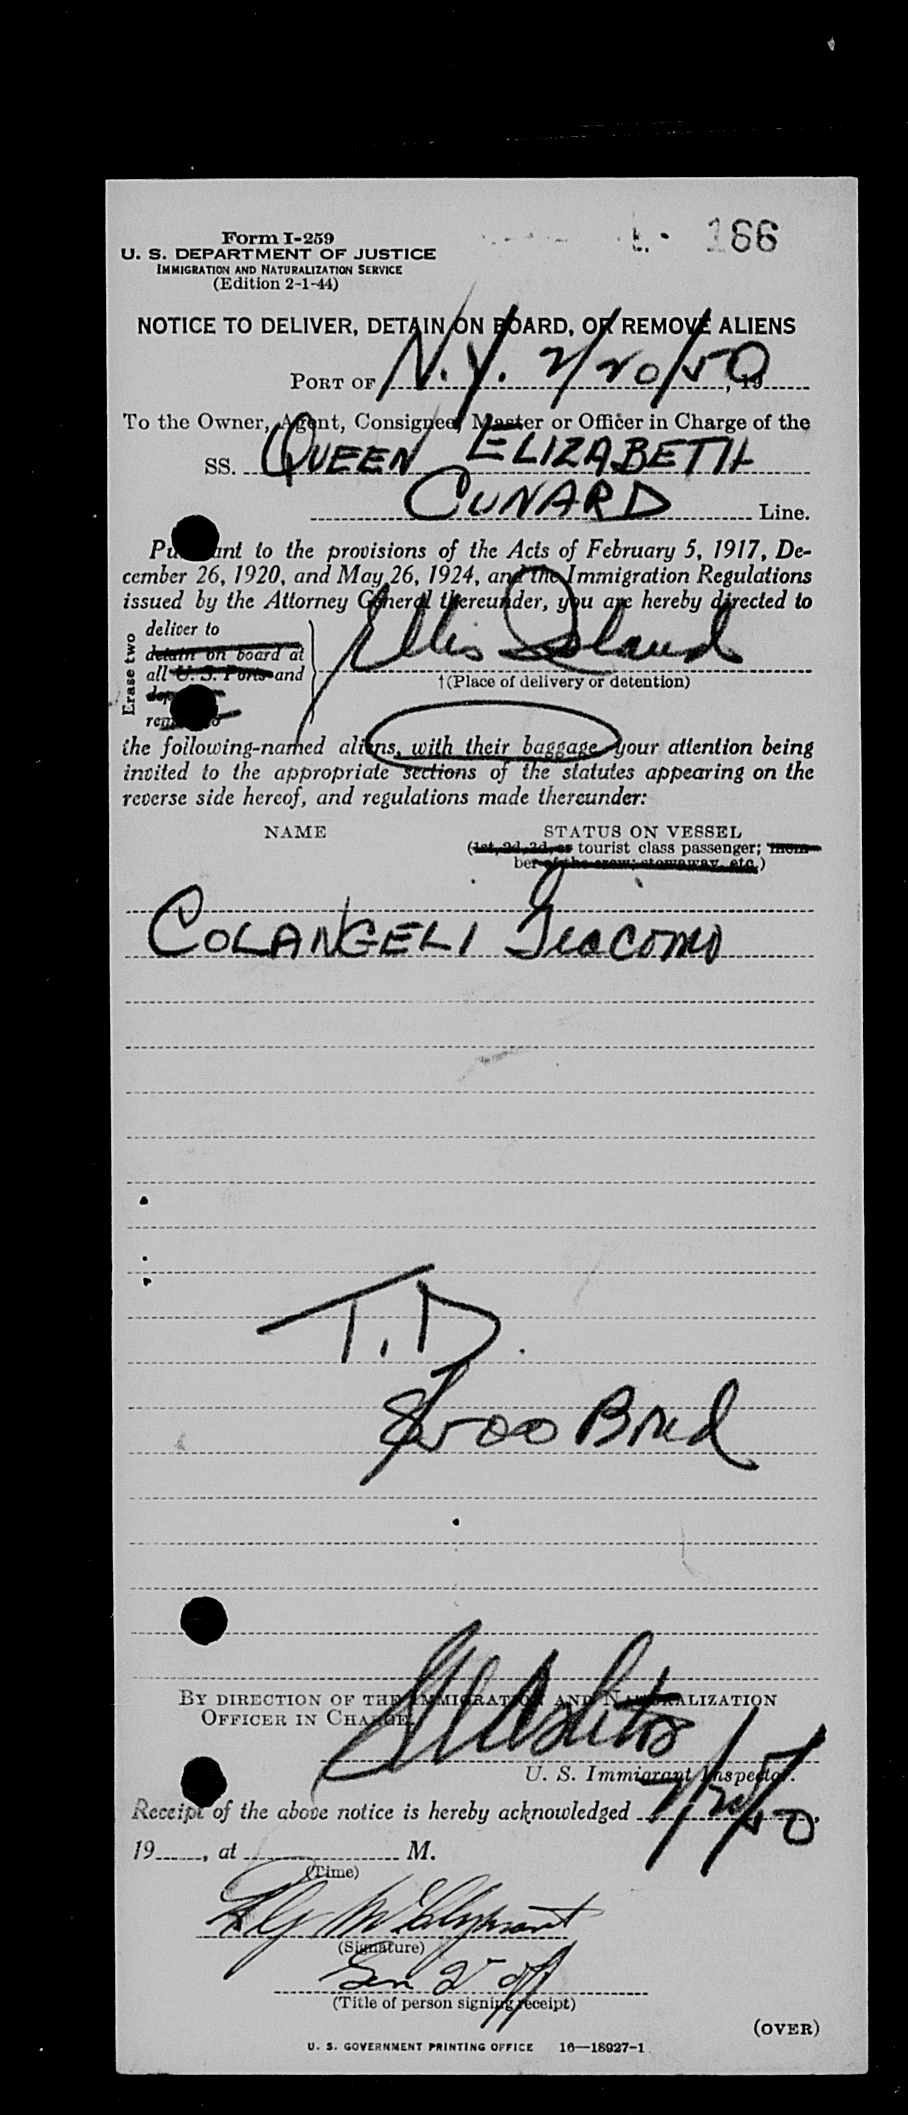 Form I-259
166
U. S. DEPARTMENT OF JUSTICE
IMMIGRATION AND NATURALIZATION SERVICE
(Edition 2-1-44)
NOTICE TO DELIVER, DETAIN ON BOARD, OR REMOVE ALIENS
PORT OF N.Y. 2/20/50, 19
To the Owner, Agent, Consignee, Master or Officer in Charge of the
SS. QUEEN ELIZABETH
CUNARD Line.
Pursuant to the provisions of the Acts of February 5, 1917, De-
cember 26, 1920, and May 26, 1924, and the Immigration Regulations
issued by the Attorney General thereunder, you are hereby directed to
Erase two
deliver to
detain on board at
all U. S. Ports and
Ellis Island
†(Place of delivery or detention)
the following-named aliens, with their baggage, your attention being
invited to the appropriate sections of the statutes appearing on the
reverse side hereof, and regulations made thereunder:
NAME STATUS ON VESSEL
(1st, 2d, 3d, or tourist class passenger; mem-
ber of the crew; stowaway, etc.)
COLANGELI Giacomo
T.D.
Bond
BY DIRECTION OF THE IMMIGRATION AND NATURALIZATION
OFFICER IN CHARGE.
U. S. Immigrant Inspector.
Receipt of the above notice is hereby acknowledged
19, at M.
(Time)
(Signature)
(Title of person signing receipt)
(OVER)
U. S. GOVERNMENT PRINTING OFFICE 16—18927-1